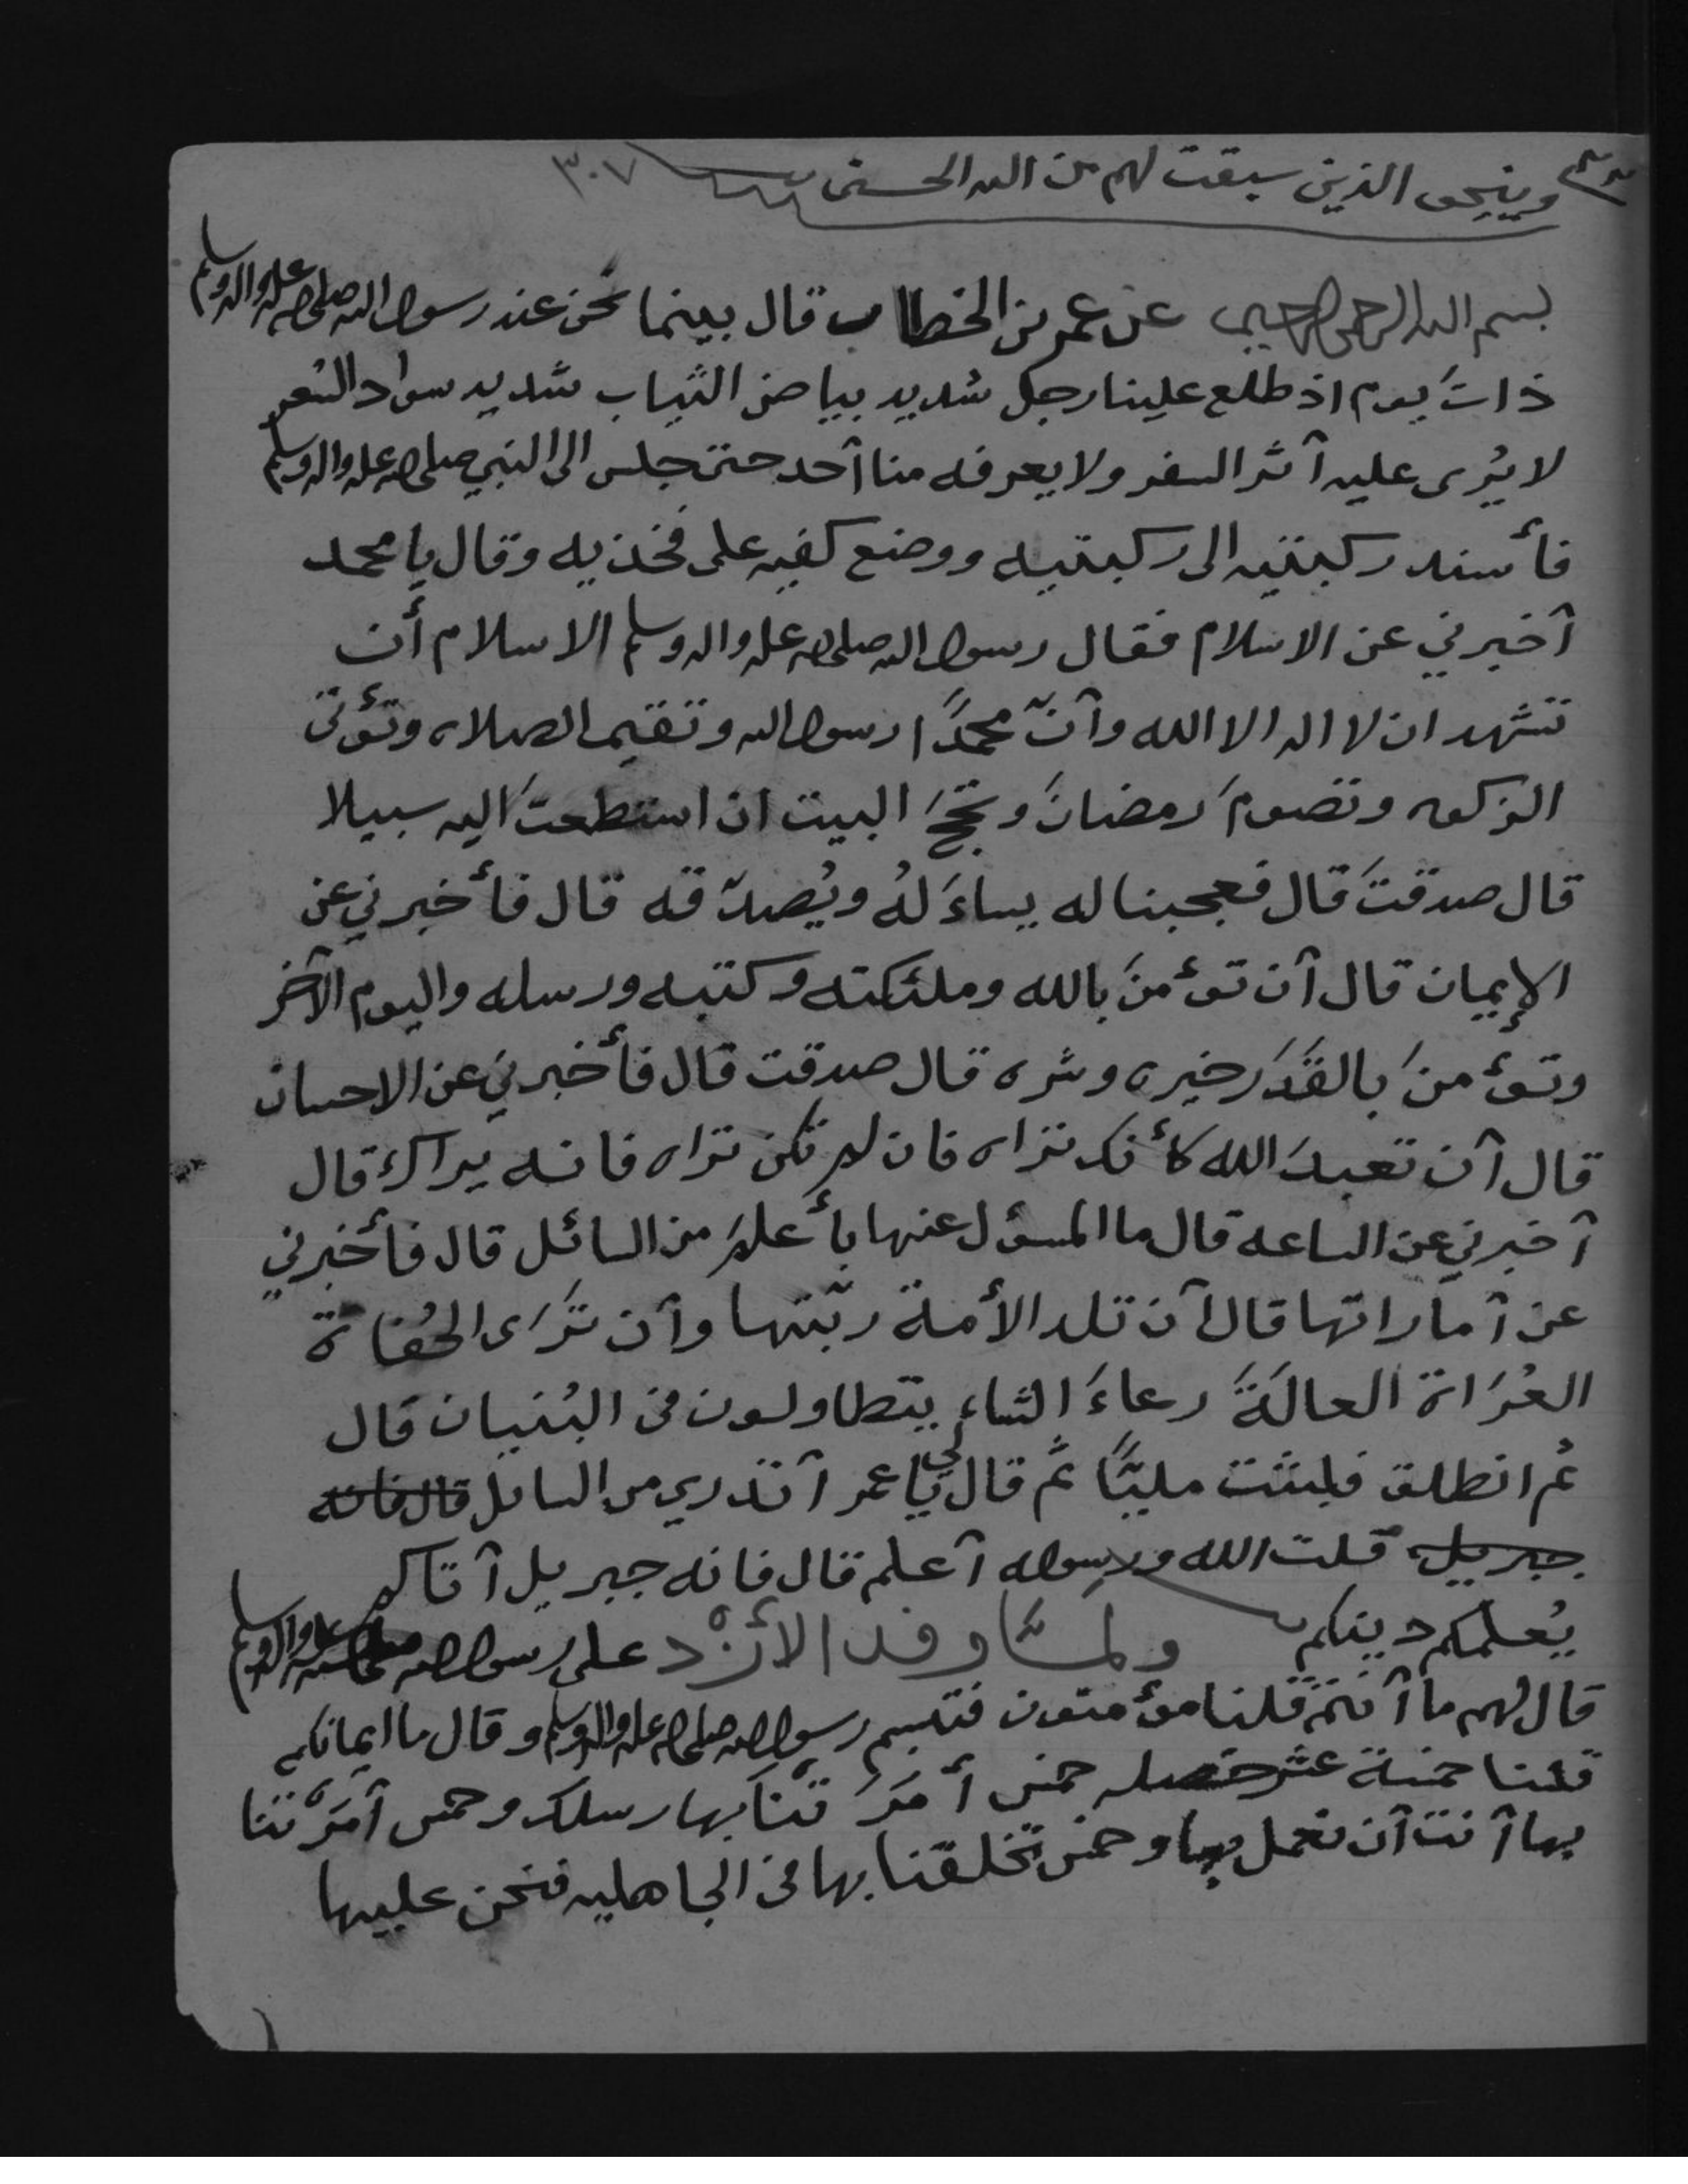 وينجى الذين سبقت لهم من الله الحسنى ٣٠٧
بسم الله الرحمن الرحيم عن عمر بن الخطاب قال بينما نحن عند رسول الله صلى الله عليه واله وسلم
ذاتَ يوم اذ طلع علينا رجل شديد بياض الثياب شديد سواد الشعر
لا يُرى عليه آثر السفر ولا يعرفه منا آحد حتى جلس الى النبي صلى الله عليه واله وسلم
فأسند ركبتيه الى ركبتيه ووضع كفيه على فخذيه وقال يا محمد
آخبرني عن الاسلام فقال رسول الله صلى الله عليه واله وسلم الاسلام أن
تشهد ان لا اله الا الله وآنّ محمدًا رسول الله وتقيم الصلاه وتؤتى
الزكوه وتصومَ رمضانَ وتحجَ البيت ان استطعتَ اليه سبيلا
قال صدقتَ قال فعجبنا له يساءَلهُ ويُصدّقه قال فأخبرني عن
الإيمان قال آن تؤمنَ بالله وملئكته وكتبه ورسله واليوم الآخر
وتؤمنَ بالقَدَر خيره وشره قال صدقت قال فأخبرني عن الاحسان
قال آن تعبدَ الله كأنك تراه فان لم تكن تراه فانه يراك قال
آخبرني عن الساعه قال ما المسؤل عنها بأعلمَ من السائل قال فأخبرني
عن آماراتها قال آن تلد الأمة ربّتها وآن تَرَى الحُفاة
العُرَاة العالَةَ رعاءَ الشاء يتطاولون فى البُنيان قال
ثم انطلق فلبثت مليًّا ثم قال لي يا عمر آتدري من السائل قال فانه
جبريل قلت الله ورسوله آعلم قال فانه جبريل آتاكم
يُعلمكم دينكم ولمَّا وفد الأزْد على رسول الله صلى الله عليه واله وسلم
قال لهم ما آنتم قلنا مؤمنون فتبسم رسول الله صلى الله عليه واله وسلم وقال ما ايمانكم
قلنا خمسة عشر خصله خمس أمَرَتنَا بها رسلك وخمس آمَرْتنا
بها آنت آن نعمل بها وخمس تخلقنا بها فى الجاهليه فنحن عليها